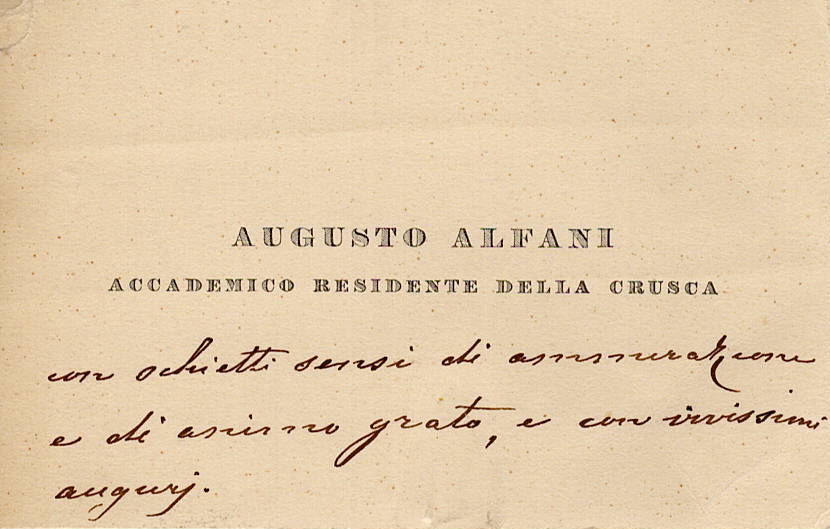 AUGUSTO ALFANI
ACCADEMICO RESIDENTE DELLA CRUSCA
con schietti sensi di ammirazione
e di animo grato, e con vivissimi
augurj.